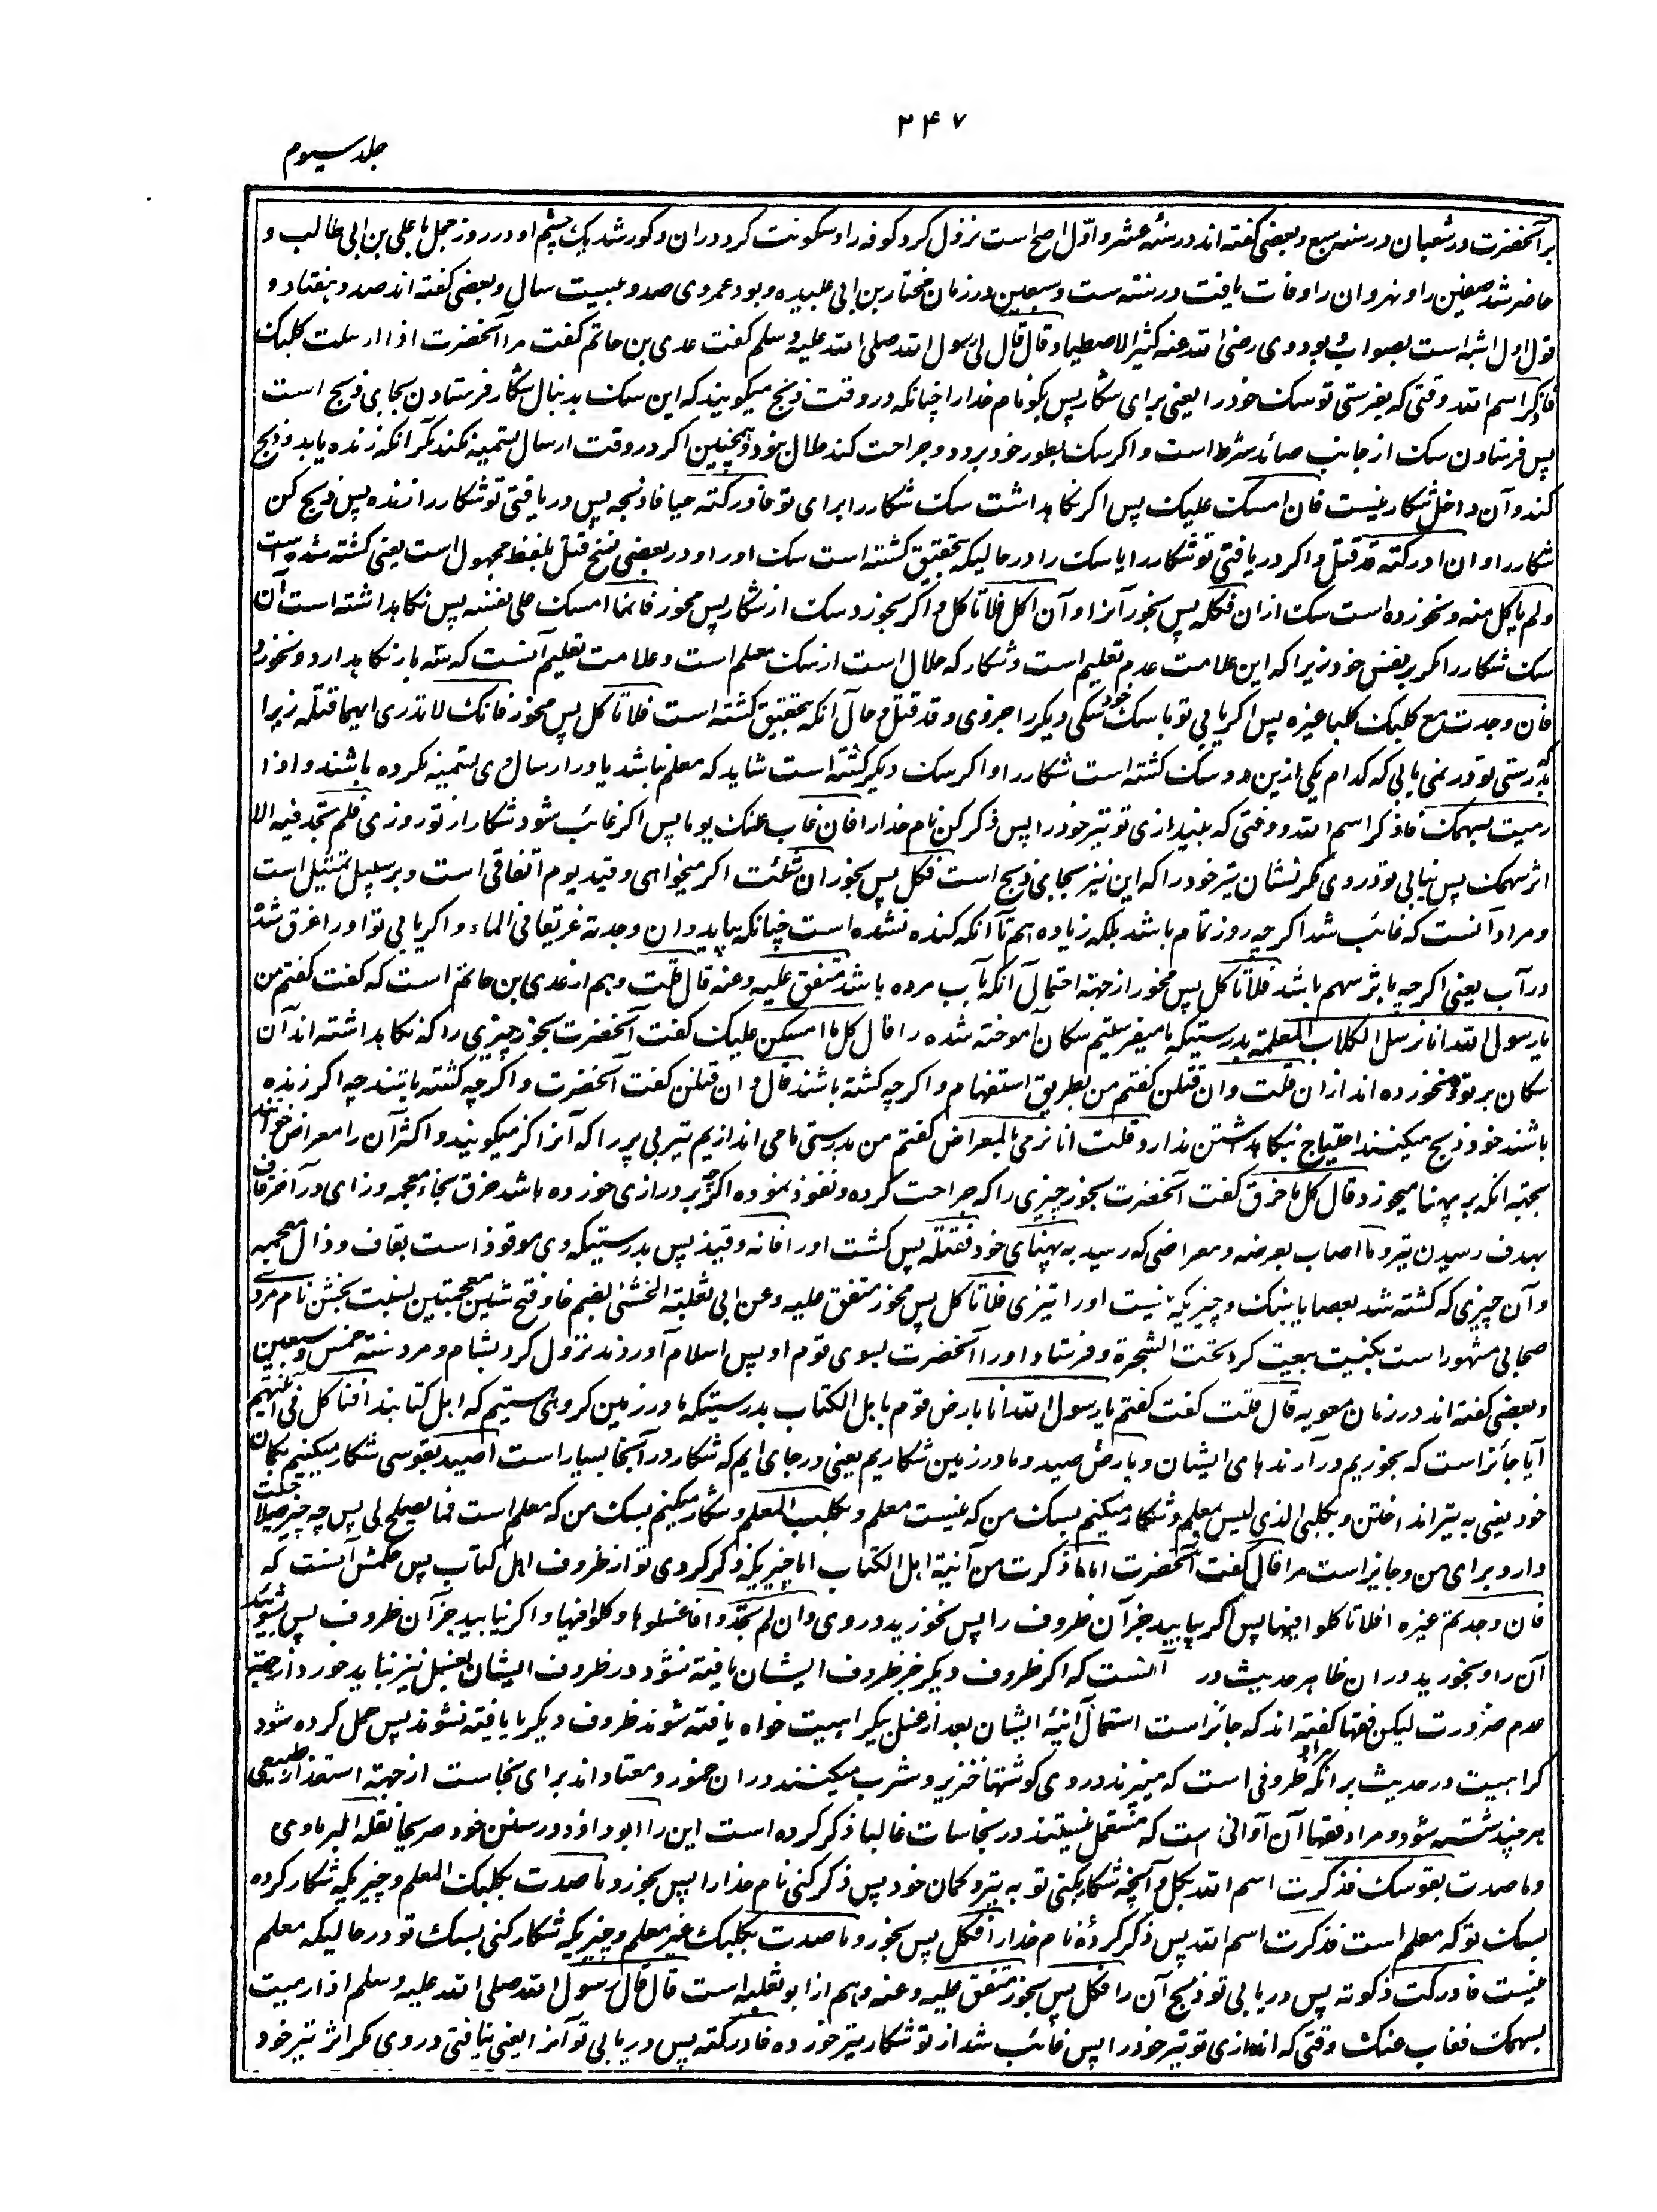 ۲۴۷
جلد سیوم
بر آنحضرت در شعبان در سنه سبع و بعضی گفته اند در سنه عشر و اوّل اصح است نزول کرد کوفه را و سکونت کرد دران و کور شد یک چشم او در روز جمل با علی بن ابی طالب و
حاضر شد صفین را و نهروان را وفات یافت در سنه ست و سبعین در زمان مختار بن ابی عبیده و بود عمر وی صد و بیست سال و بعضی گفته اند صد و هفتاد و
قول اول اشبه است بصواب و بود وی رضی الله عنه کثیر الاصطیاد قال قال لی رسول الله صلی الله علیه وسلم گفت عدی بن حاتم گفت مرا آنحضرت اذا ارسلت کلبک
فاذکر اسم الله وقتی که بفرستی تو سگ خود را یعنی برای شکار پس بگو نام خدا را چنانکه در وقت ذبح میگویند که این سگ بدنبال شکار فرستادن بجای ذبح است
پس فرستادن سگ از جانب صائد شرط است و اگر سگ بطور خود برود و جراحت کند حلال نبود و همچنین اگر در وقت ارسال تسمیه نکند مگر آنکه زنده یابد و ذبح
کند و آن داخل شکار نیست فان امسک علیک پس اگر نگاهداشت سگ شکار را برای تو فادرکته حیا فاذبحه پس دریافتی تو شکار را زنده پس ذبح کن
شکار را و ان ادرکته قد قتل و اگر دریافتی تو شکار را یا سگ را در حالیکه بتحقیق کشته است سگ او را و در بعضی نسخ قتل بلفظ مجهول است یعنی کشته شده است
و لم یاکل منه و نخورده است سگ ازان فکله پس بخور آنرا و آن اکل فلا تاکل و اگر بخورد سگ از شکار پس مخور فانما امسک علی نفسه پس نگاهداشته است آن
سگ شکار را مگر بر نفس خود زیرا که این علامت عدم تعلیم است و شکار که حلال است از سگ معلم است و علامت تعلیم آنست که سه بار نگاهدارد و نخورد
فان وجدت مع کلبک کلبا غیره پس اگر یابی تو با سگ خود سگی دیگر را جز وی و قد قتل و حال آنکه بتحقیق کشته است فلا تاکل پس مخور فانک لا تدری ایهما قتله زیرا
بدرستی تو در نمی یابی که کدام یکی ازین دو سگ کشته است شکار را و اگر سگ دیگر کشته است شاید که معلم نباشد یا در ارسال وی تسمیه نکرده باشند و اذا
رمیت بسهمک فاذکر اسم الله و وقتی که بیندازی تو تیر خود را پس ذکر کن نام خدا را فان غاب عنک یوما پس اگر غائب شود شکار از تو روزی فلم تجد فیه الا
اثر سهمک پس نیابی تو در وی مگر نشان تیر خود را که این نیز بجای ذبح است فکل پس بخور ان شئت اگر میخواهی و قید یوم اتفاقی است و بر سبیل تمثیل است
و مراد آنست که غائب شد اگرچه روز تمام باشد بلکه زیاده هم تا آنکه گنده نشده است چنانکه بیاید و ان وجدته غریقا فی الماء و اگر یابی تو او را غرق شده
در آب یعنی اگرچه باثر سهم باشد فلا تاکل پس مخور از جهته احتمال آنکه بآب مرده باشد متفق علیه و عنه قال قلت و هم از عدی بن حاتم است که گفت گفتم من
یا رسول الله انا نرسل الکلاب المعلمة بدرستیکه ما میفرستیم سگان آموخته شده را قال کل ما امسکن علیک گفت آنحضرت بخور چیزی را که نگاهداشته اند آن
سگان بر تو و نخورده اند ازان قلت و ان قتلن گفتم من بطریق استفهام و اگرچه کشته باشند قال و ان قتلن گفت آنحضرت و اگرچه کشته باشند چه اگر زنده
باشند خود ذبح میکنند احتیاج نگاهداشتن ندارد قلت انا نرمی بالمعراض گفتم من بدرستی ما می اندازیم تیر بی پر را که آنرا گز میگویند و اکثر آن را معراض خوانند
بجهته آنکه بر پهنا میخورد قال کل ما خزق گفت آنحضرت بخور چیزی را که جراحت کرده و نفوذ نموده اگرچه بر درازی خورده باشد خزق بخاء معجمه و زای در آخر قاف
بهدف رسیدن تیر و ما اصاب بعرضه و معراضی که رسید به پهنای خود فقتله پس کشت او را فانه وقیذ پس بدرستیکه وی موقوذ است بقاف و ذال معجمه
و آن چیزی که کشته شد بعصا یا بسنگ و چیزیکه نیست او را تیزی فلا تاکل پس مخور متفق علیه و عن ابی ثعلبة الخشنی بضم خا و فتح شین معجمتین نسبت بخشن نام مردے
صحابی مشهور است بکنیت بیعت کرد تحت الشجرة و فرستاد او را آنحضرت بسوی قوم او پس اسلام آوردند نزول کرد بشام و مرد سنه خمس و سبعین
و بعضی گفته اند در زمان معویه قال قلت گفت گفتم یا رسول الله انا بارض قوم باهل الکتاب بدرستیکه ما در زمین گروهی هستیم که اهل کتابند افناکل فی آنیتهم
آیا جائز است که بخوریم در آوندهای ایشان و بارض صید و ما در زمین شکاریم یعنی در جای ایم که شکار در آنجا بسیار است اصید بقوسی شکار میکنیم بکمان
خود یعنی به تیر انداختن و بکلبی الذی لیس بمعلم و شکار میکنیم بسگ من که نیست معلم و بکلبی المعلم و شکار میکنیم بسگ من که معلم است فما یصلح لی پس چه چیز صلاحیت
دارد برای من و جایز است مرا قال گفت آنحضرت اما ما ذکرت من آنیة اهل الکتاب اما چیزیکه ذکر کردی تو از ظروف اهل کتاب پس حکمش آنست که
فان وجدتم غیرها فلا تاکلوا فیها پس اگر بیابید جز آن ظروف را پس نخورید در وی و ان لم تجدوا فاغسلوها و کلوا فیها و اگر نیابید جز آن ظروف پس بشوئید
آن را و بخورید دران ظاهر حدیث در آنست که اگر ظروف دیگر جز ظروف ایشان یافته نشود در ظروف ایشان بغسل نیز نباید خورد از جهته
عدم ضرورت لیکن فقها گفته اند که جائز است استعمال آنیهٔ ایشان بعد از غسل بیکراهیت خواه یافته شوند ظروف دیگر یا یافته نشوند پس حمل کرده شود
کراهیت در حدیث بر آنکه مراد ظروفی است که میپزند در وی گوشتها خنزیر و شرب میکنند دران خمور و معتاد اند برای نجاست از جهته استقذار طبیعی
هرچند شسته شود و مراد فقها آن آوانی است که مستعمل نیستند در نجاسات غالبا ذکر کرده است این را ابوداؤد در سنن خود صریحا نقله البرماوی
و ما صدت بقوسک فذکرت اسم الله فکل و آنچه شکار بکنی تو به تیر و کمان خود پس ذکر کنی نام خدا را پس بخور و ما صدت بکلبک المعلم و چیزیکه شکار کرده
بسگ تو که معلم است فذکرت اسم الله پس ذکر کردهٔ نام خدا را فکل پس بخور و ما صدت بکلبک غیر معلم و چیزیکه شکار کنی بسگ تو در حالیکه معلم
نیست فادرکت ذکوته پس دریابی تو ذبح آن را فکل پس بخور متفق علیه و عنه و هم از ابو ثعلبه است قال قال رسول الله صلی الله علیه وسلم اذا رمیت
بسهمک فغاب عنک وقتی که اندازی تو تیر خود را پس غائب شد از تو شکار تیر خورده فادرکته پس دریابی تو آنرا یعنی نیافتی در وی مگر اثر تیر خود